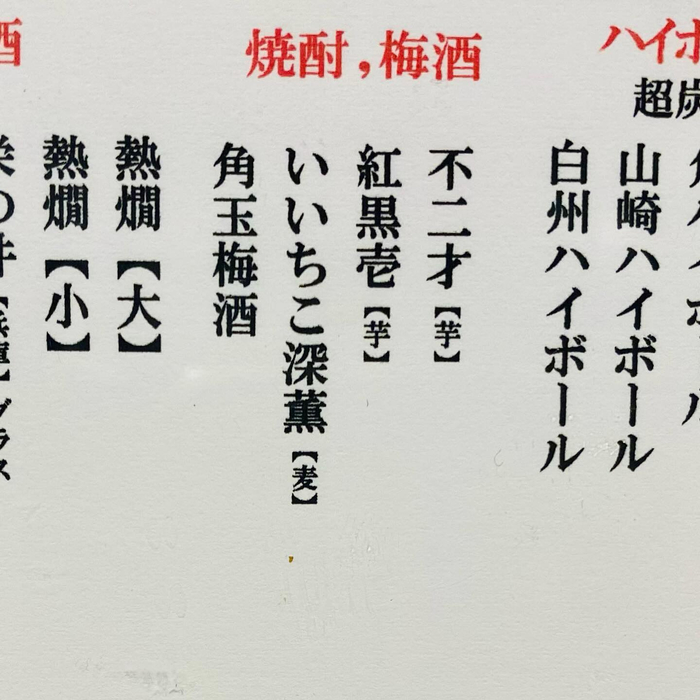 ハイボ
超炭
山崎ハイボール
白州ハイボール
焼酎,梅酒
不二才【芋】
紅黒壱【芋】
いいちこ深薫【麦】
角玉梅酒
酒
熱燗【大】
熱燗【小】
の井【兵庫】グラス